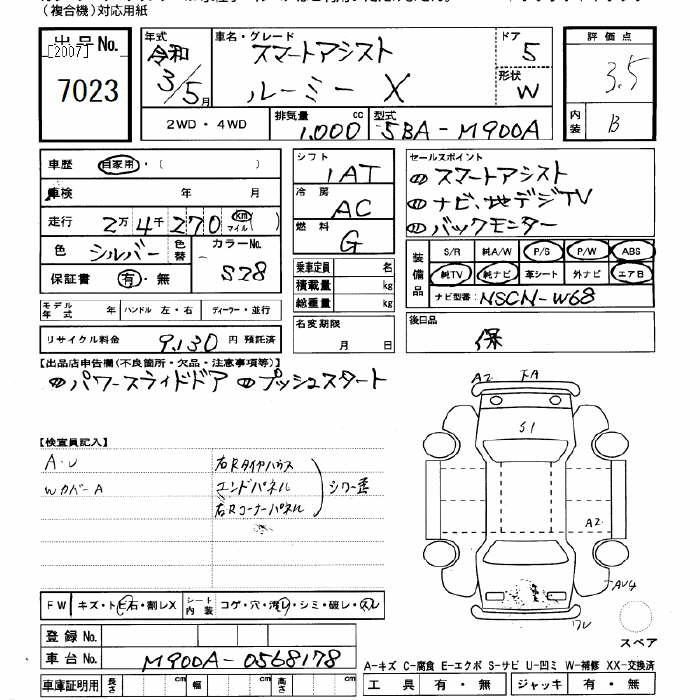 （複合機）対応用紙
出品No.
［2007］
7023
年式 令和 3/5月
車名・グレード スマートアシスト ルーミー X
ドア 5
形状 W
2WD・4WD
排気量 1,000 cc
型式 5BA-M900A
評価点 3.5
内装 B
車歴 自家用・（ ）
車検 年 月
走行 2万4千270 km マイル（ ）
色 シルバー 色替 カラーNo. S28
保証書 有・無
モデル年式 年 ハンドル 左・右 ディーラー・並行
リサイクル料金 9,130 円 預託済
シフト IAT
冷房 AC
燃料 G
乗車定員 名
積載量 kg
総重量 kg
名変期限 月 日
セールスポイント
スマートアシスト
ナビ、地デジTV
バックモニター
装備品 S/R 純A/W P/S P/W ABS
純TV 純ナビ 革シート 外ナビ エアB
ナビ型番: NSCN-W68
後日品 保
【出品店申告欄（不良箇所・欠品・注意事項等）】
パワースライドドア プッシュスタート
【検査員記入】
A・U 右Rタイヤハウス
Wカバー A エンドパネル
右Rコーナーパネル
A2
S1
A2
FW キズ・トビ石・割レX シート内装 コゲ・穴・汚レ・シミ・破レ・スレ
登録No.
車台No. M900A-0568178
車庫証明用 長さ cm 幅 cm 高さ cm
スペア
A-キズ C-腐食 E-エクボ S-サビ U-凹ミ W-補修 XX-交換済
工具 有・無 ジャッキ 有・無